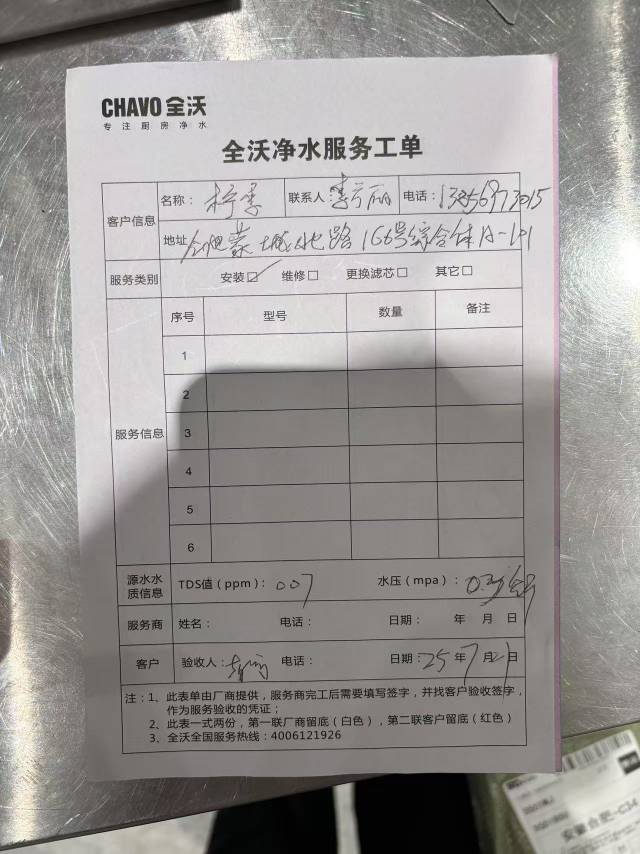 CHAVO 全沃
专注厨房净水
全沃净水服务工单
客户信息
名称： 柠季 联系人 电话：
地址 路166号综合体
服务类别 安装☑ 维修□ 更换滤芯□ 其它□
服务信息
序号 型号 数量 备注
1
2
3
4
5
6
源水水质信息 TDS值（ppm）：007 水压（mpa）：
服务商 姓名： 电话： 日期： 年 月 日
客户 验收人： 电话： 日期：25年7月21日
注：1、此表单由厂商提供，服务商完工后需要填写签字，并找客户验收签字，
作为服务验收的凭证；
2、此表一式两份，第一联厂商留底（白色），第二联客户留底（红色）
3、全沃全国服务热线：4006121926